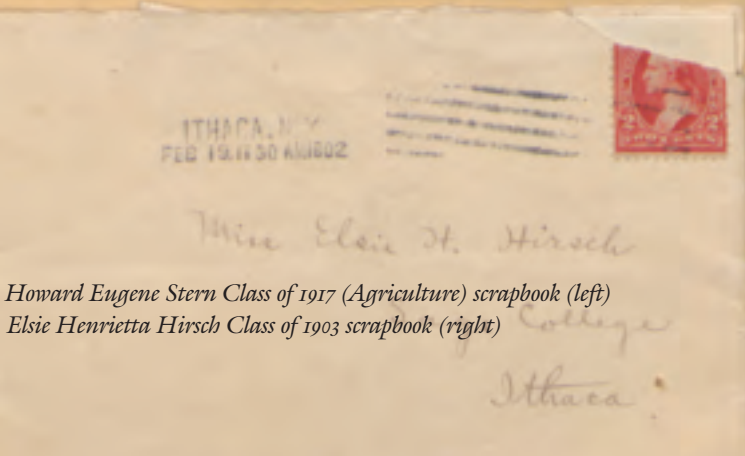 ITHACA, N.Y.
FEB 19. 11 30 AM 1902
2 2
TWO CENTS
Miss Elsie H. Hirsch
Howard Eugene Stern Class of 1917 (Agriculture) scrapbook (left)
Elsie Henrietta Hirsch Class of 1903 scrapbook (right)
College
Ithaca.